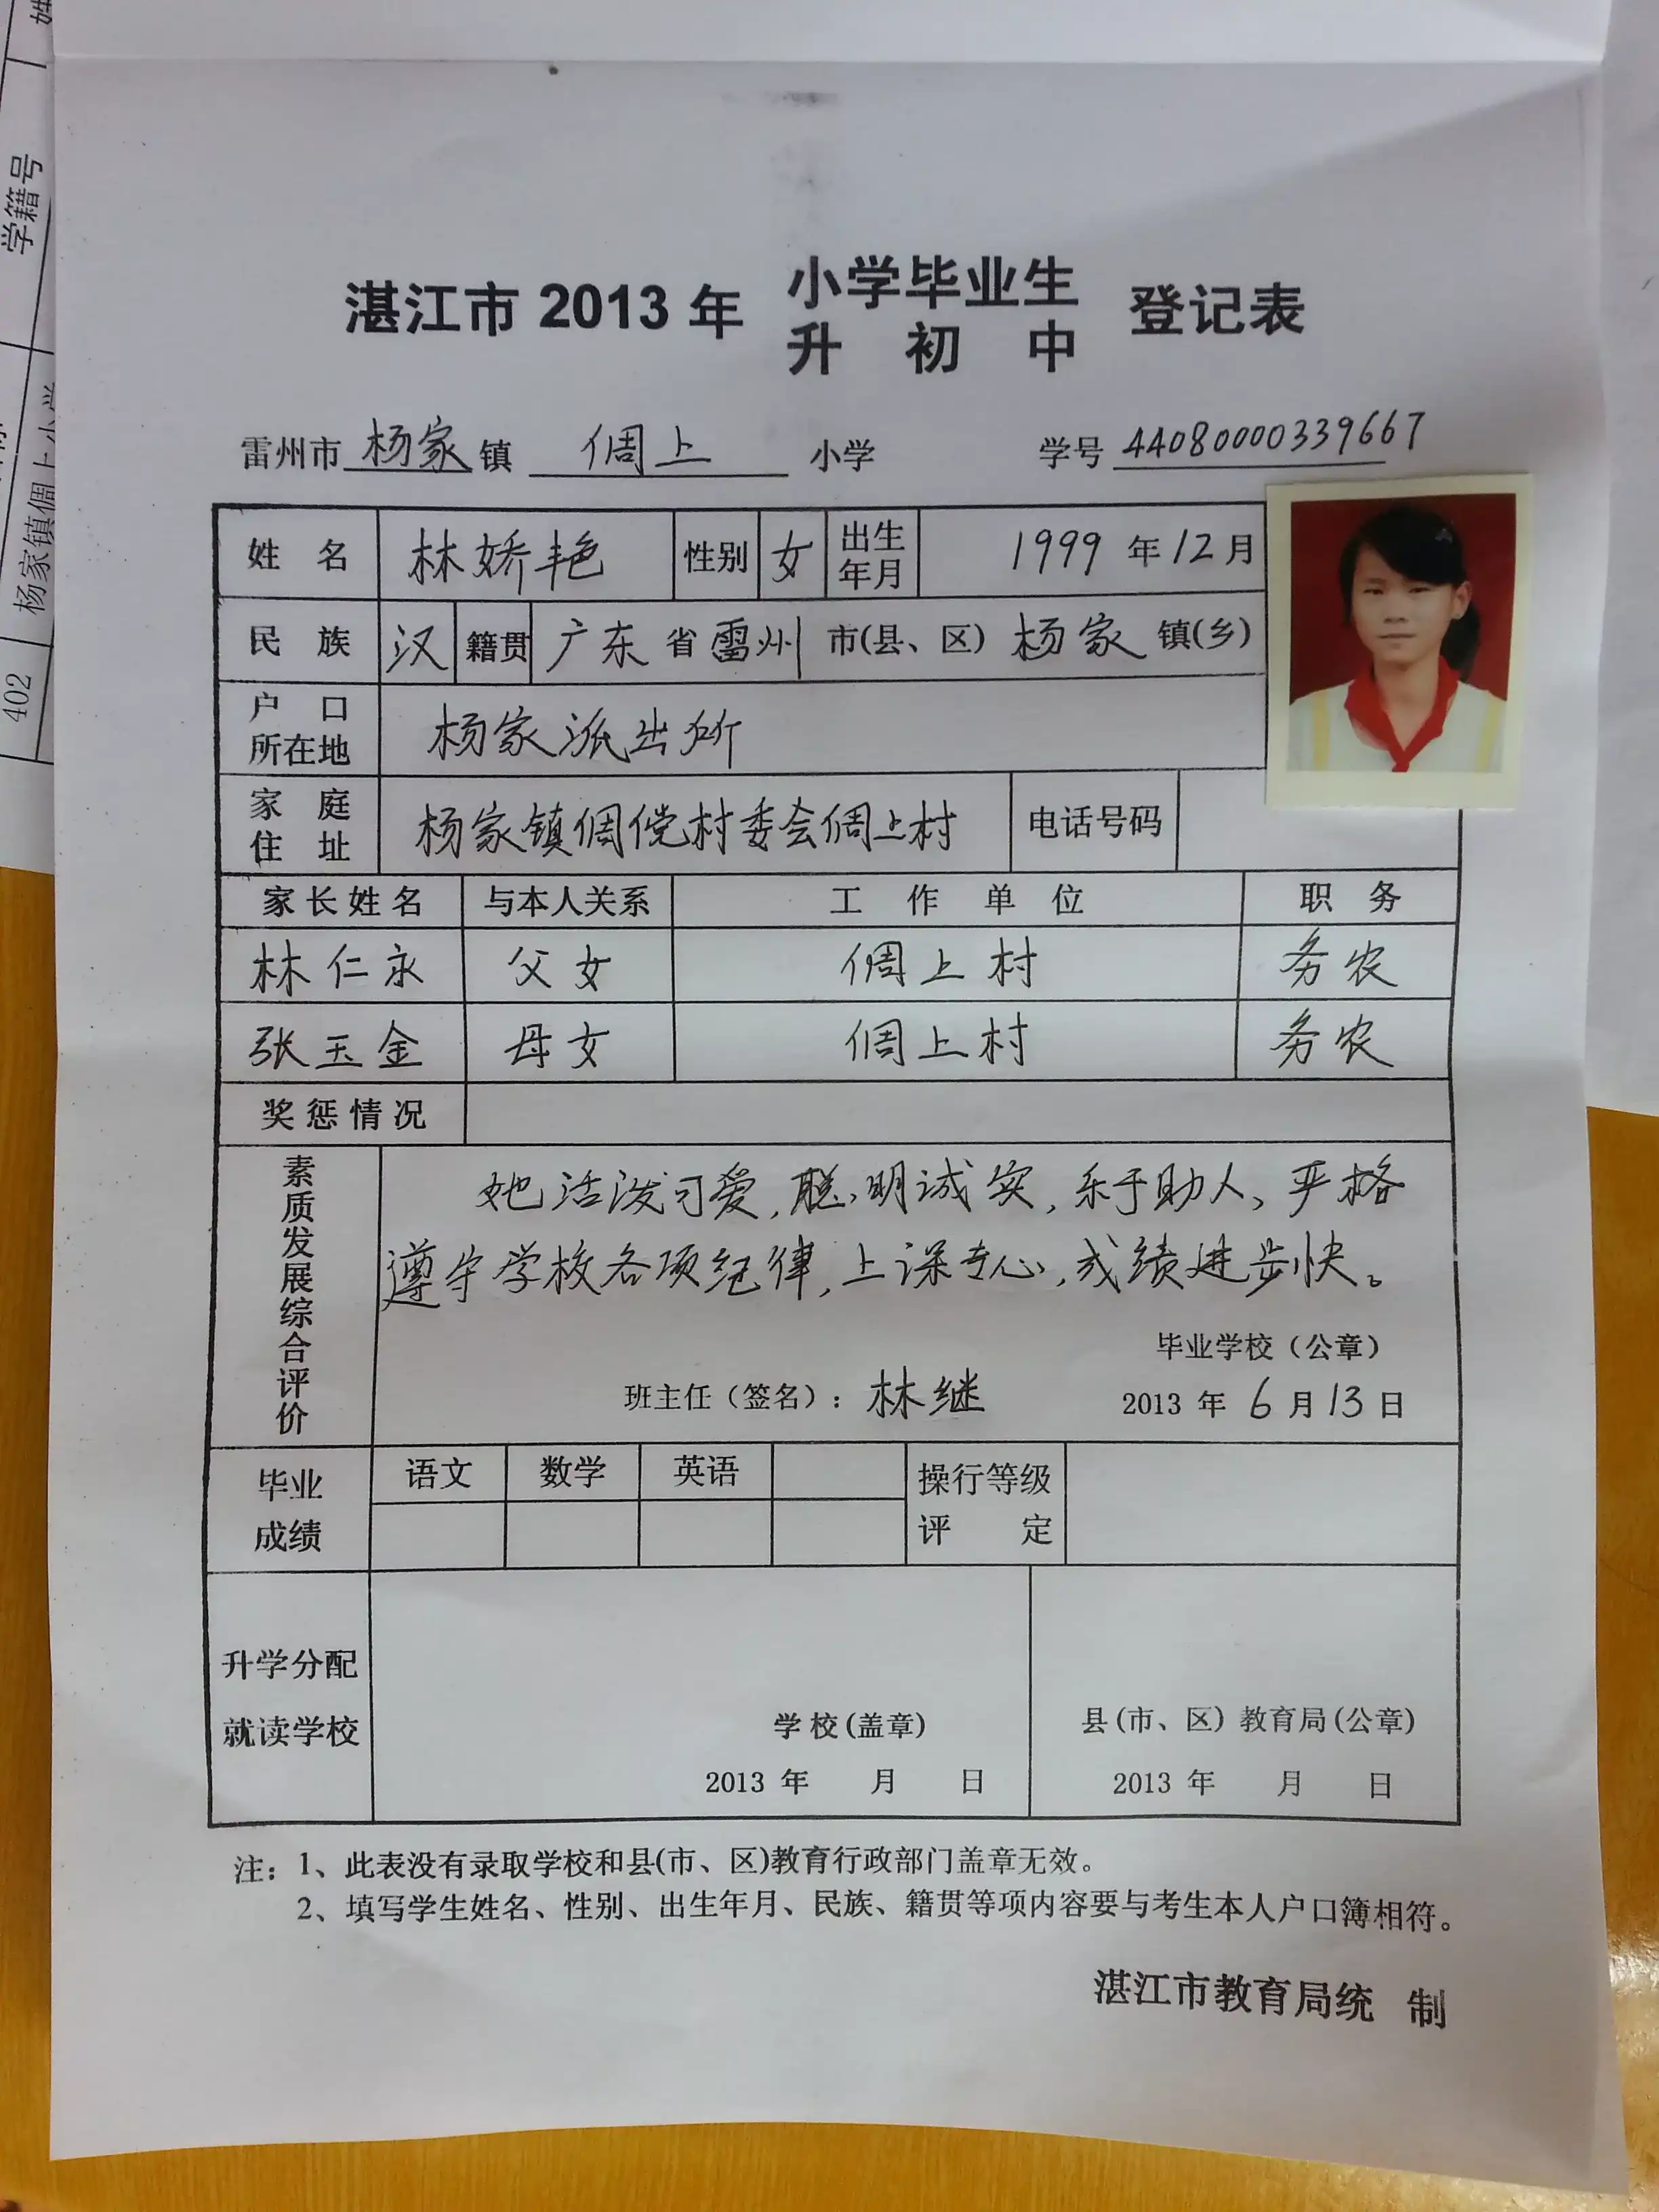 湛江市 2013 年 小学毕业生 登记表
升 初 中
雷州市 杨家 镇 倜上 小学 学号 44080000339667
姓 名 林娇艳 性别 女 出生年月 1999 年 12 月
民 族 汉 籍贯 广东 省 雷州 市(县、区) 杨家 镇(乡)
户 口 所在地 杨家派出所
家 庭 住 址 杨家镇倜傥村委会倜上村 电话号码
家长姓名 与本人关系 工 作 单 位 职 务
林仁永 父女 倜上村 务农
张玉金 母女 倜上村 务农
奖惩情况
素质发展综合评价
她活泼可爱,聪明诚实,乐于助人、严格
遵守学校各项纪律,上课专心,成绩进步快。
毕业学校（公章）
班主任（签名）：林继 2013 年 6 月 13 日
毕业成绩 语文 数学 英语 操行等级评 定
升学分配
就读学校
学校(盖章) 县(市、区) 教育局(公章)
2013 年 月 日 2013 年 月 日
注：1、此表没有录取学校和县(市、区)教育行政部门盖章无效。
2、填写学生姓名、性别、出生年月、民族、籍贯等项内容要与考生本人户口簿相符。
湛江市教育局统 制
学籍号
杨家镇倜上小学
402